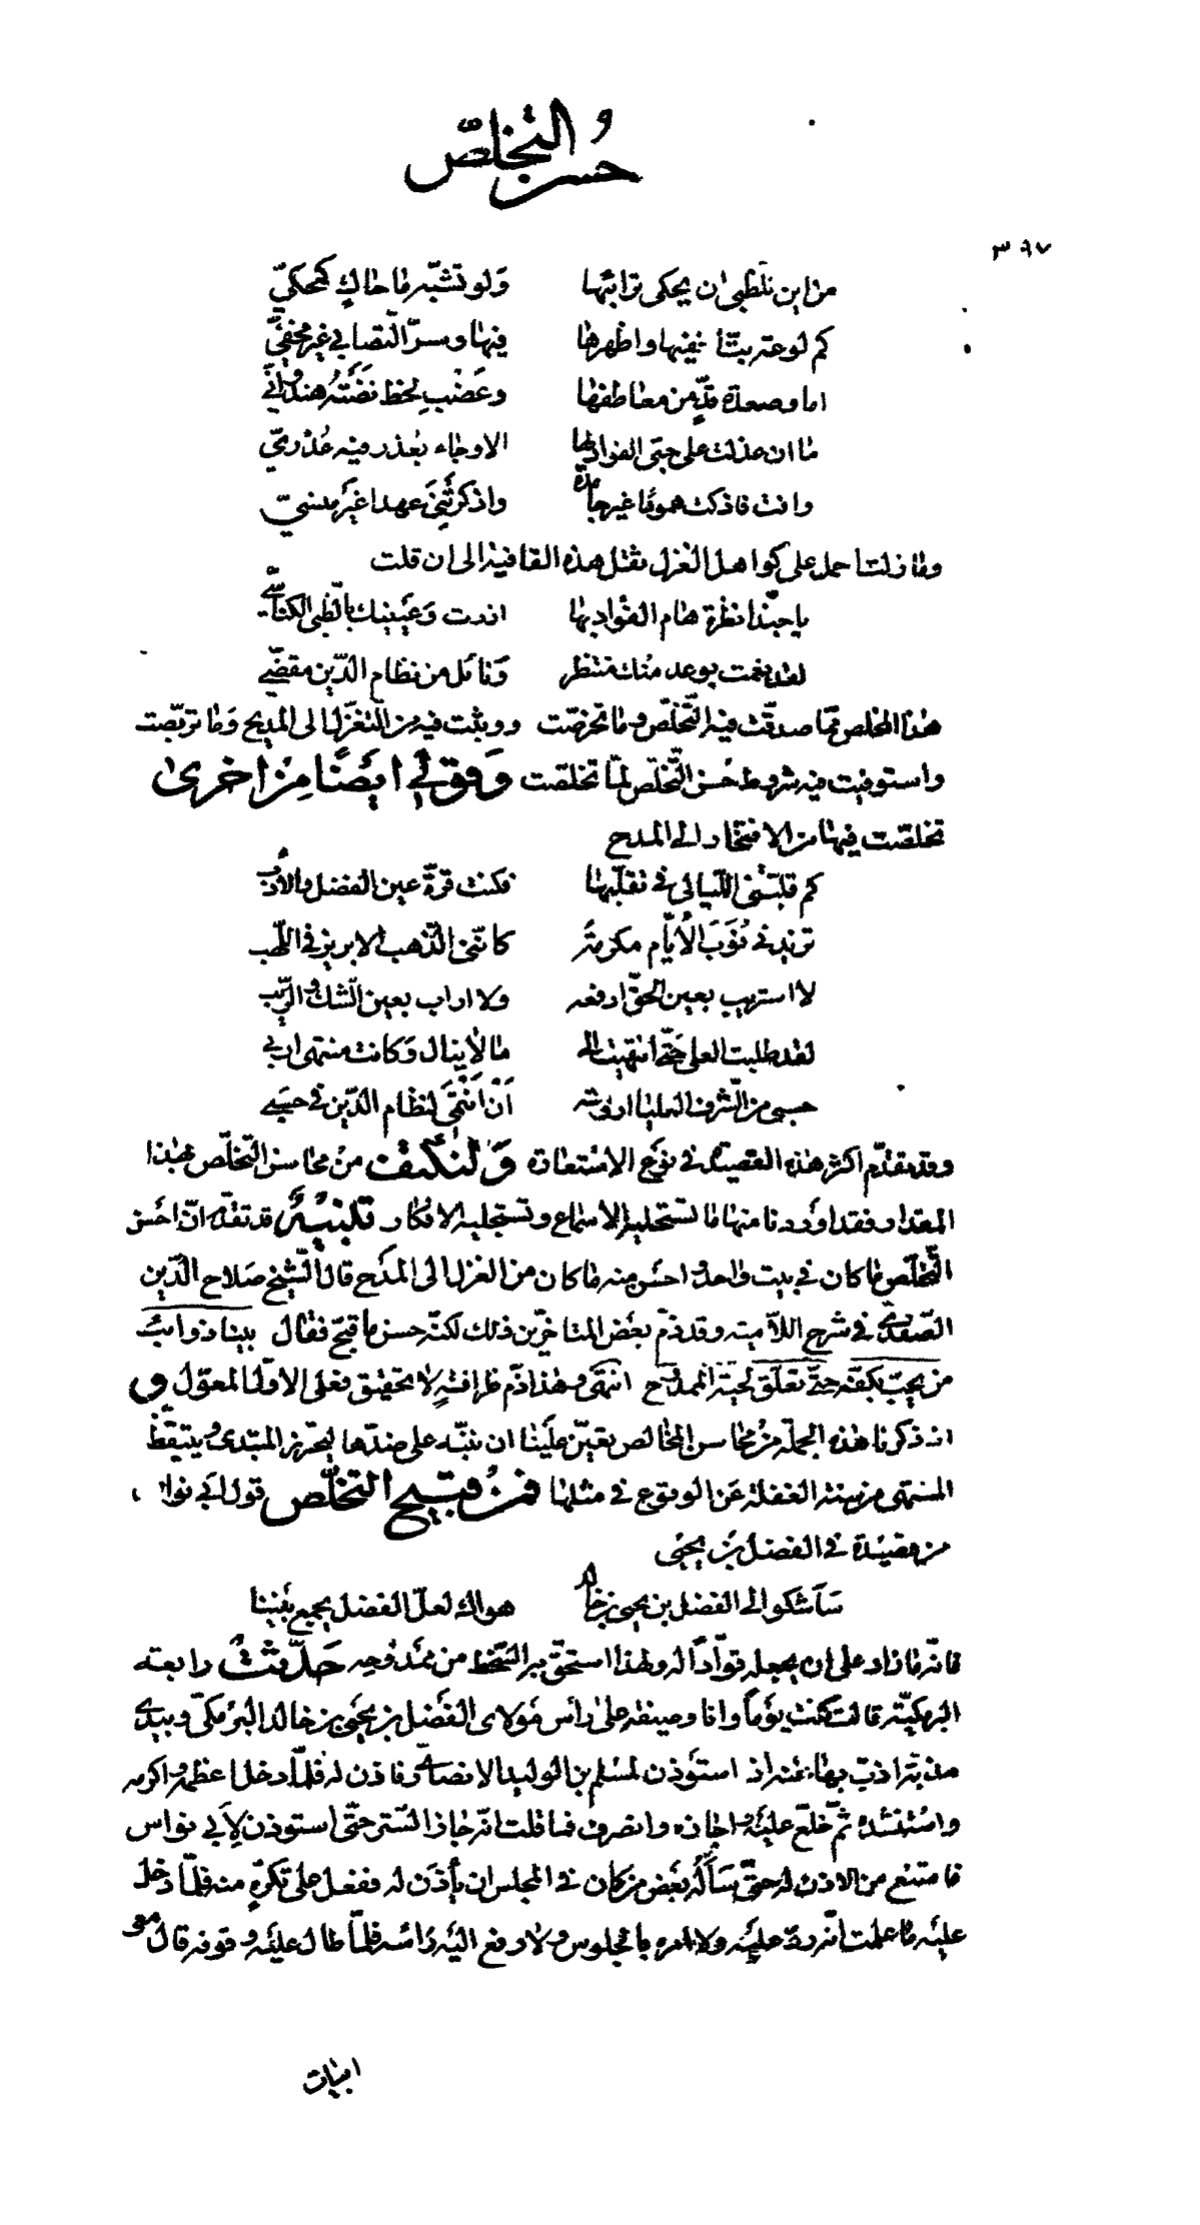 حسن التخلّص
٣٦٧
من اين للظبى ان يحكى ترائبها ولو تشبّه ما حاكٍ كمحكىّ
كم لوعة بتّ اخفيها واظهرها فيها وسرّ التصابي غير مخفيّ
اما وصعدة قدٍّ من معاطفها وعضب لحظ نضته هندوانىّ
ما ان عذلت على حبّى الفؤاد لها الا وجاء بعذر فيه عذريّ
وانت اذكت هموما غير جامدة واذكرتنى عهدا غير منسىّ
وما زلت احمل على كواهل الغزل ثقل هذه القافية الى ان قلت
يا حبّذا نظرة هام الفؤاد بها ازرت وعينيك بالظبى الكناسىّ
لقد نعمت بوعد منك منتظر ونائل من نظام الدّين مقضىّ
هذا المخلص ممّا صدقت فيه التّخلّص وما تخرّصت ووثبت فيه من التغزّل الى المديح وما تربّصت
واستوفيت فيه شروط حسن التّخلّص لمّا تخلّصت ووقع لي ايضًا من اخرى
تخلّصت فيها من الافتخار الى المدح
كم قلّبتنى اللّيالى فى تقلّبها فكنت قرّة عين الفضل والأدب
تزيد فى نوَب الأيّام مكرمةً كانّنى الذّهب الابريز فى اللّهب
لا استريب بعين الحقّ ادفعه ولا اراب بعين الشّك والرّيب
لقد طلبت العلى حتّى انتهيت الى ما لا ينال وكانت منتهى اربى
حسبى من الشّرف العليا ارومته أن أنتمى لنظام الدّين فى حسبى
وقد تقدّم اكثر هذه القصيدة فى نوع الاستعارة ولنكتف من محاسن التّخلّص بهذا
المقدار فقد اوردنا منها ما تستحليه الاسماع وتستجليه الافكار تنبيهٌ قد تقدّم انّ احسن
التّخلّص ما كان في بيت واحد واحسن منه ما كان من الغزل الى المدح قال الشّيخ صلاح الدّين
الصّفدىّ في شرح اللاّمية وقد ذمّ بعض المتاخّرين ذلك لكنّه حسن ما قبح فقال بينا ذوائب
من يحبّ بكفّه حتّى تعلّق لحية الممدوح انتهى وهذا ذمّ ظرافةٍ لا تحقيق فعلى الاوّل المعوّل و
اذ ذكرنا هذه الجملة من محاسن المخالص تعيّن علينا ان ننبّه على ضدّها ليحترز المبتدى ويتيقّظ
المنتهى من سنة الغفلة عن الوقوع فى مثلها فمن قبيح التخلّص قول ابي نواس
من قصيدة فى الفضل بن يحيى
سأشكو الى الفضل بن يحيى بن خالد هواك لعلّ الفضل يجمع بيننا
فانّه ما زاد على ان يجعله قوّاداً له ولهذا استحقّ به السّخط من ممدوحه حدّثت رابعة
البرمكيّة قالت كنت يوماً وانا وصيفة على رأس مولاى الفضل بن يحيى بن خالد البرمكىّ وبيدى
مذبّة اذبّ بها عنه اذ استؤذن لمسلم بن الوليد الانصارىّ فاذن له فلمّا دخل اعظمه واكرمه
واستنشده ثمّ خلع عليه واجازه وانصرف فما قلت انّه جاز السّتر حتّى استؤذن لأبي نواس
فامتنع من الاذن له حتّى سأله بعض من كان فى المجلس ان يأذن له ففعل على تكرّهٍ منه فلمّا دخل
عليه ما علمت انّه ردّ عليه ولا امره بالجلوس ولا رفع اليه رأسه فلمّا طال عليه وقوفه قال معى
ابيات